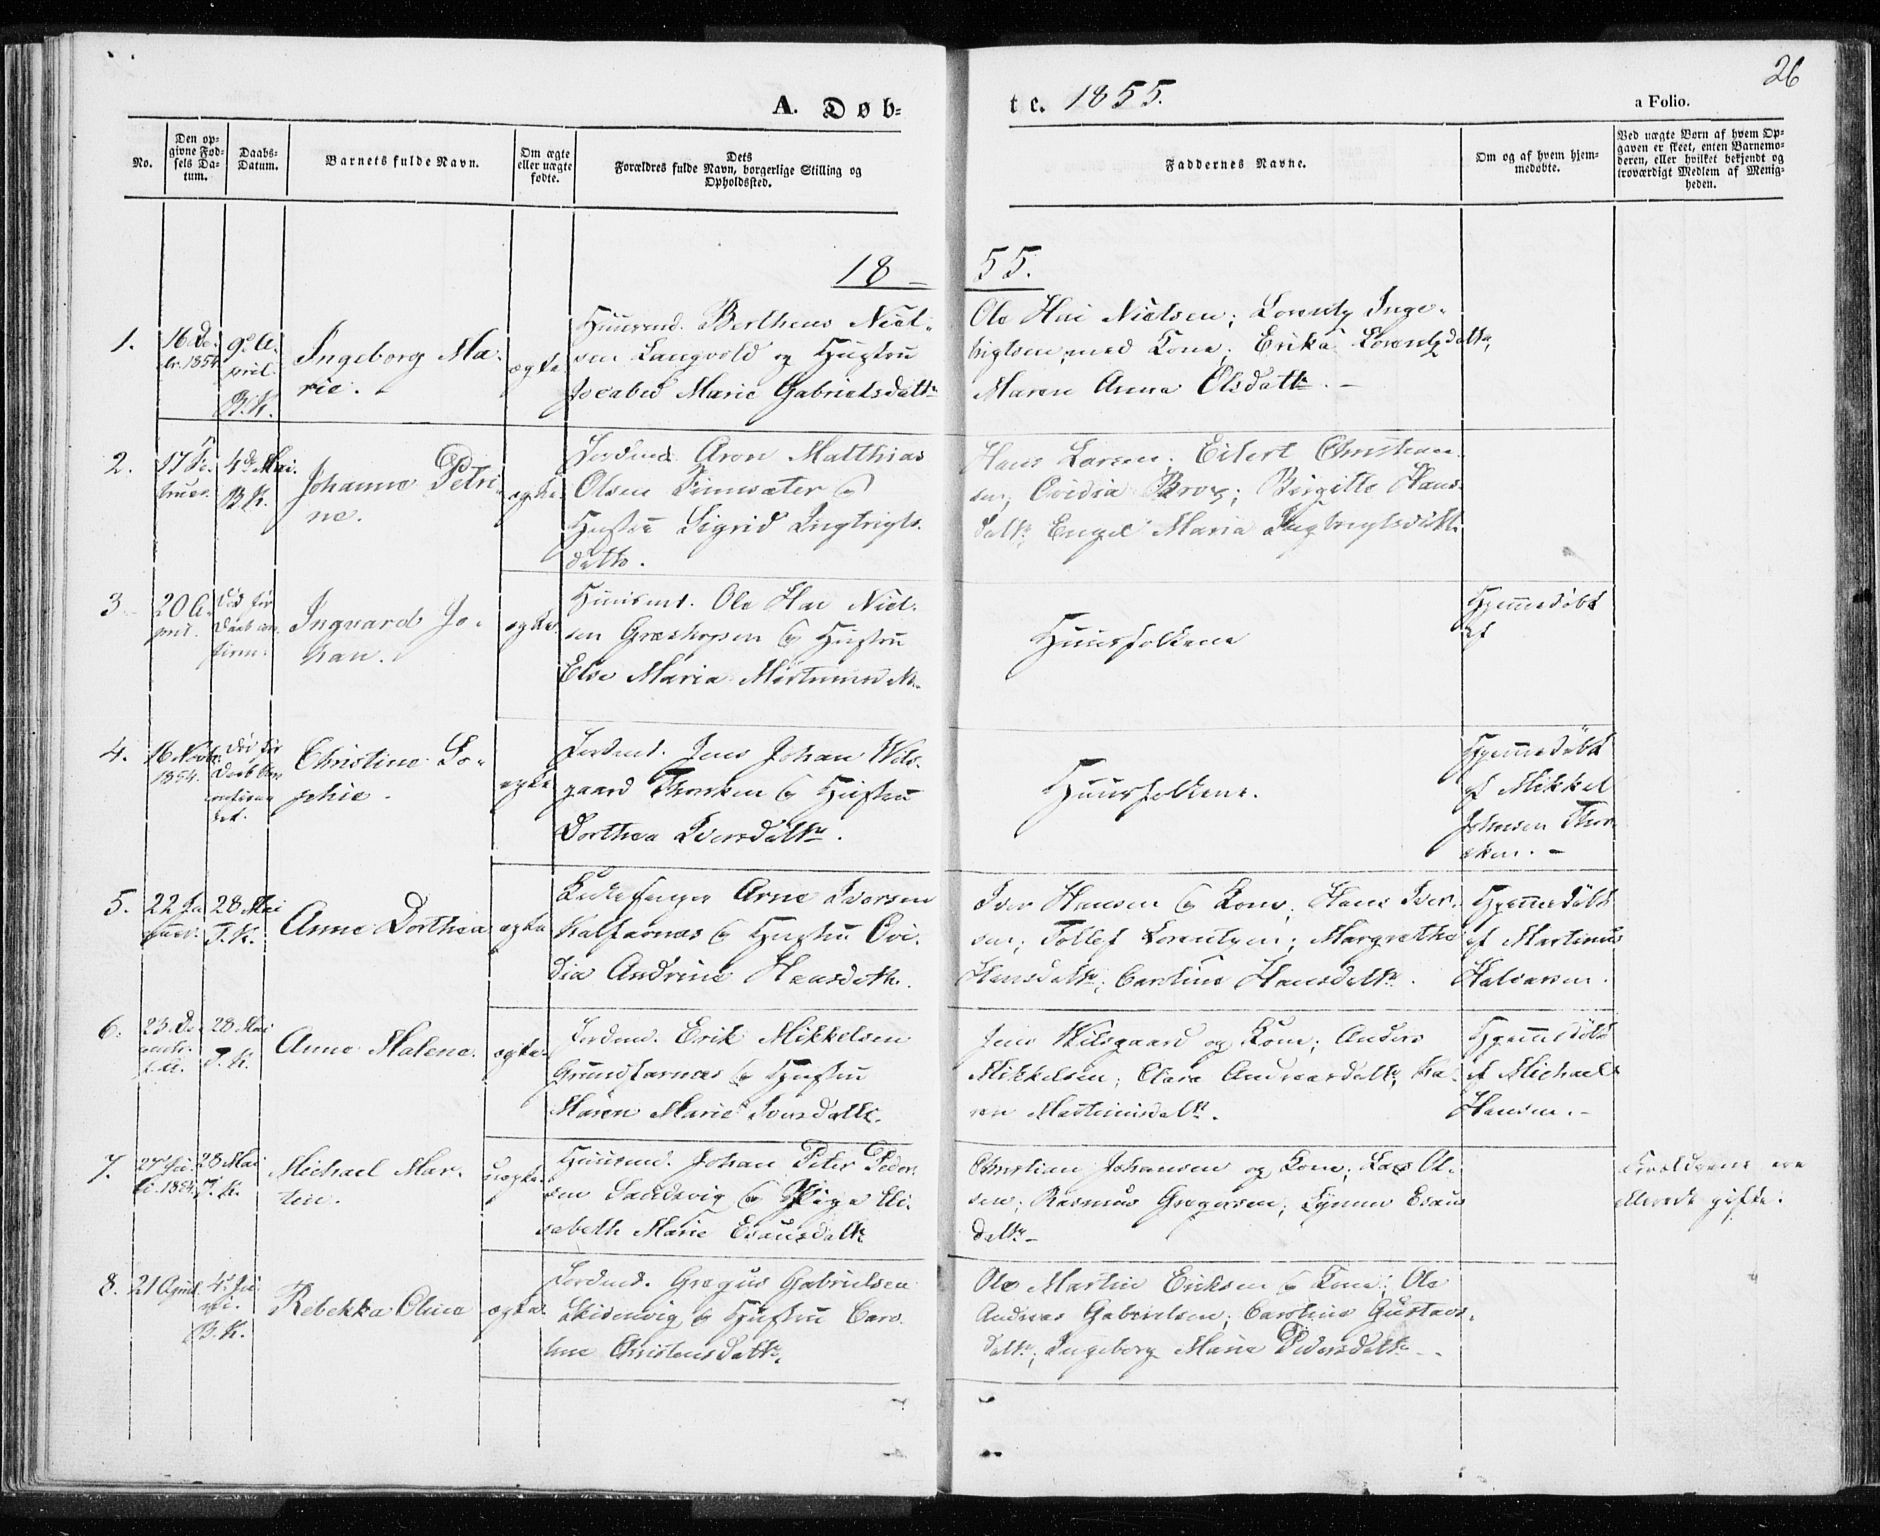 26
A. Døb-
te. 1855.
a Folio.
No.
Den op-
givne Fød-
sels Da-
tum.
Daabs-
Datum.
Barnets fulde Navn.
Om ægte
eller uægte
fødte.
Dets
Forældres fulde Navn, borgerlige Stilling og
Opholdssted.
Faddernes Navne.
Om og af hvem hjem-
medøbte.
Ved uægte Born af hvem Op-
gaven er skeet, enten Barnemo-
deren, eller hvilket bekjendt og
troværdigt Medlem af Menig-
heden.
18 – 55.
1.
16 De-
br. 1854
9de A-
pril.
B. K.
Ingeborg Ma-
rie.
ægte
Huusmd. Bertheus Niel-
sen Langvold og Hustru
Marie Gabrielsdattr
Ole Hai Nielsen; Lorentz Inge-
brigtsen, med Kone; Erika Lorentzdattr,
Maren Anna Olsdattr. –
2.
17 Fe-
bruar.
4de Mai.
B. K.
Johanne Petri-
ne.
ægte.
Jordmd. Aron Matthias
Olsen Finnsæter &
Hustru Sigrid Ingbrigts-
dattr.
Hans Larsen; Eilert Christian-
sen; Ovidia Brox; Birgitte Hans-
dattr; Engel Maria Ingbrigtsdattr.
3
20 A-
pril.
Død før
Daab con-
firm.
Ingvard Jo-
han.
ægte.
Huusmd. Ole Hai Niel-
sen Græshopen & Hustru
Else Maria Mortensdattr.
Huusfolkene
Hjemmedøbt
af
4.
16 Novbr.
1854.
Død før
Daab
det.
Christine So-
phie.
ægte
Jordmd. Jens Johan Wils-
gaard Thorsken & Hustru
Dorthea Iversdattr.
Huusfolkene.
Hjemmedøbt
af Mikkel
Johnsen Thor-
sken. –
5.
22 Ja-
nuar.
28 Mai
T. K.
Anne Dorthea
ægte
Arne Iversen
Kalfarnæs & Hustru Ovi-
dia Andrine Hansdattr.
Iver Hansen & Kone; Hans Iver-
sen; Tollef Lorentzen; Margrethe
Hansdattr; Caroline Hansdattr.
Hjemmedøbt
af Martinus
Halvorsen.
6.
23 De-
28 Mai
T. K.
Anne Malene.
ægte.
Jordmd. Erik Mikkelsen
Grundfarnæs & Hustru
Maren Marie Iversdattr.
Jens Wilsgaard og Kone; Anders
Mikkelsen; Clara Andreasdattr; Ka-
ren Martinusdattr.
Hjemmedøbt
af Michael
Hansen. –
7.
27 Ju-
li 1854.
28 Mai
T. K.
Michael Mar-
tin.
uægte.
Huusmd. Johan Peter Peder-
sen Sandsvig & Pige Eli-
sabeth Marie Esausdattr
Christian Johansen og Kone; Lars Ol-
sen; Rasmus Gregersen; Esaus
dattr –
Forældrene ere
allerede gifte.
8.
21 April
4de Ju-
ni.
B. K.
Rebekka Olina
ægte.
Jordmd. Gregus Gabrielsen
Skidenvig & Hustru Caro-
line Christensdattr.
Ole Martin Eriksen & Kone; Ole
Andreas Gabrielsen; Caroline Gustavs-
dattr; Ingeborg Marie Pedersdattr –